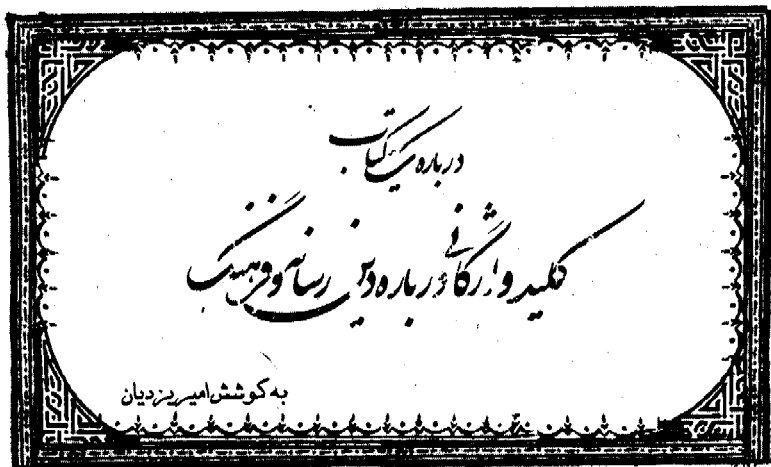 درباره یک کتاب
کلید واژگانی درباره دین، رسانه و فرهنگ
به کوشش امیر یزدیان